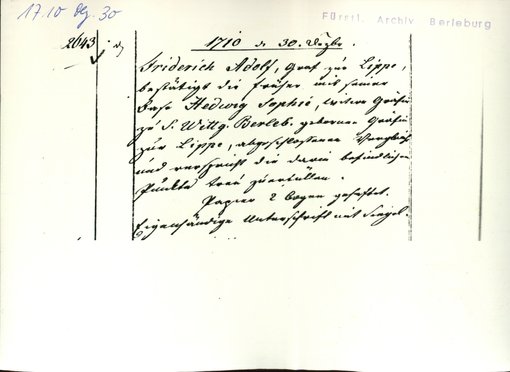 1710 Dz. 30
Fürstl. Archiv Berleburg
2643
1710 d. 30. Dezbr.
Friderich Adolf, Graf zur Lippe,
bestätigt die früher mit seiner
Base Hedwig Sophie, Gräfin
zu S. Wittg. Berleb. geborenen Gräfin
zur Lippe, abgeschlossenen Vergleich
und verspricht die darin befindlichen
Punkte treu zu erfüllen.
Papier 2 bogen geheftet.
Eigenhändige Unterschrift mit Siegel.